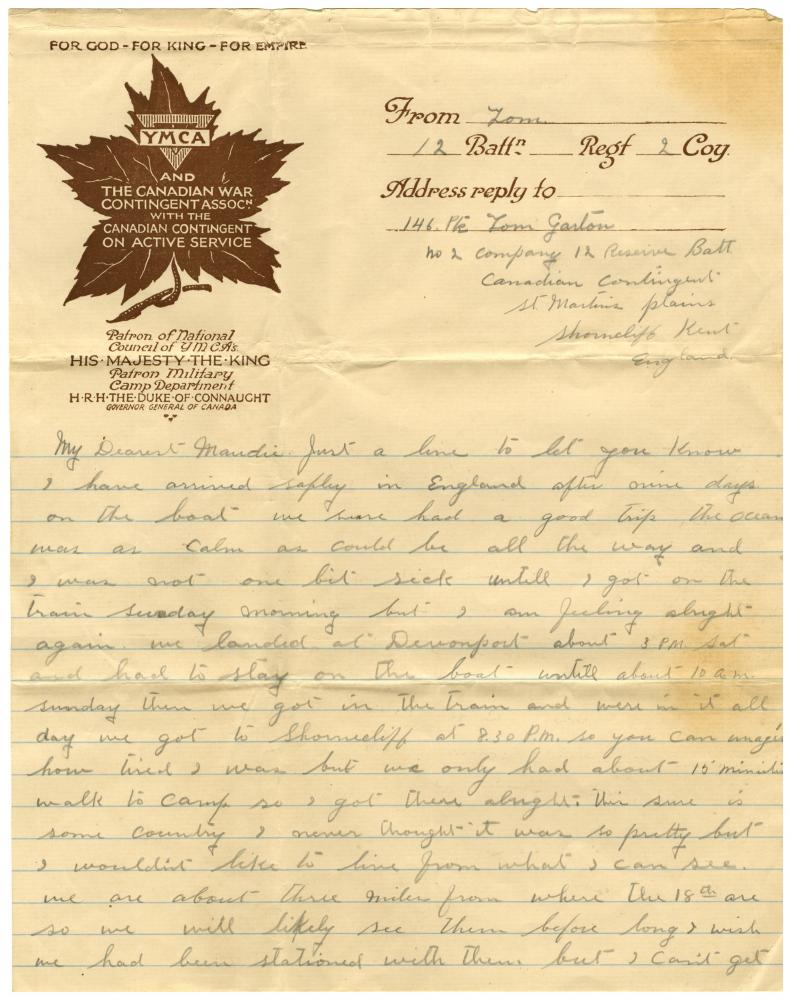 FOR GOD - FOR KING - FOR EMPIRE
YMCA
AND
THE CANADIAN WAR
CONTINGENT ASSOCN
WITH THE
CANADIAN CONTINGENT
ON ACTIVE SERVICE
Patron of National
Council of YMCA's
HIS·MAJESTY·THE·KING
Patron Military
Camp Department
H·R·H·THE·DUKE·OF·CONNAUGHT
GOVERNOR GENERAL OF CANADA
From Tom
12 Battn Regt 2 Coy.
Address reply to
146. Pte Tom Garton
No 2 Company 12 Reserve Batt
Canadian Contingent
St Martins plains
Shorncliff Kent
England.
My Dearest Maudie. Just a line to let you know
I have arrived safley in England after nine days
on the boat we sure had a good trip the ocean
was as calm as could be all the way and
I was not one bit sick untill I got on the
train sunday morning but I am feeling alright
again. we landed at Devonport about 3 PM sat
and had to stay on the boat untill about 10 a.m.
sunday then we got in the train and were in it all
day we got to Shorncliff at 8.30 P.M. so you can
how tired I was but we only had about 15
walk to camp so I got there alright. this sure is
some country I never thought it was so pretty but
I wouldn't like to live from what I can see.
we are about three miles from where the 18th are
so we will likely see them before long I wish
we had been stationed with them but I can't get